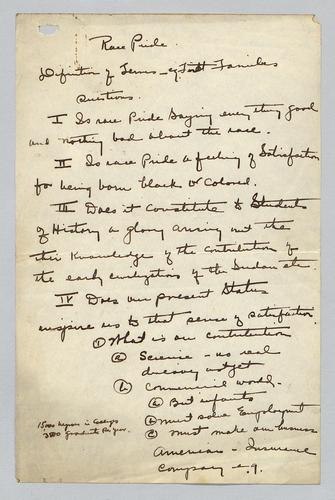 Race Pride
Definition of Terms - eg First Families
Questions.
I Is race Pride Saying every thing good
and nothing bad about the race.
II Is race Pride a feeling of Satisfaction
for being born black or Colored.
III Does it Constitute to Students
of History a glory arising out the
their Knowledge of the Contribution of
the early civilizations of the Sudan etc.
IV Does our present Status
inspire us to that sense of satisfaction.
① What is our contribution
ⓐ Science - no real
discovery as yet
ⓑ Commercial world.
ⓐ But infants
ⓑ must seek Employment
ⓒ must make our business
American - Insurance
Company e.g.
15000 negroes in College
2500 graduate this year.